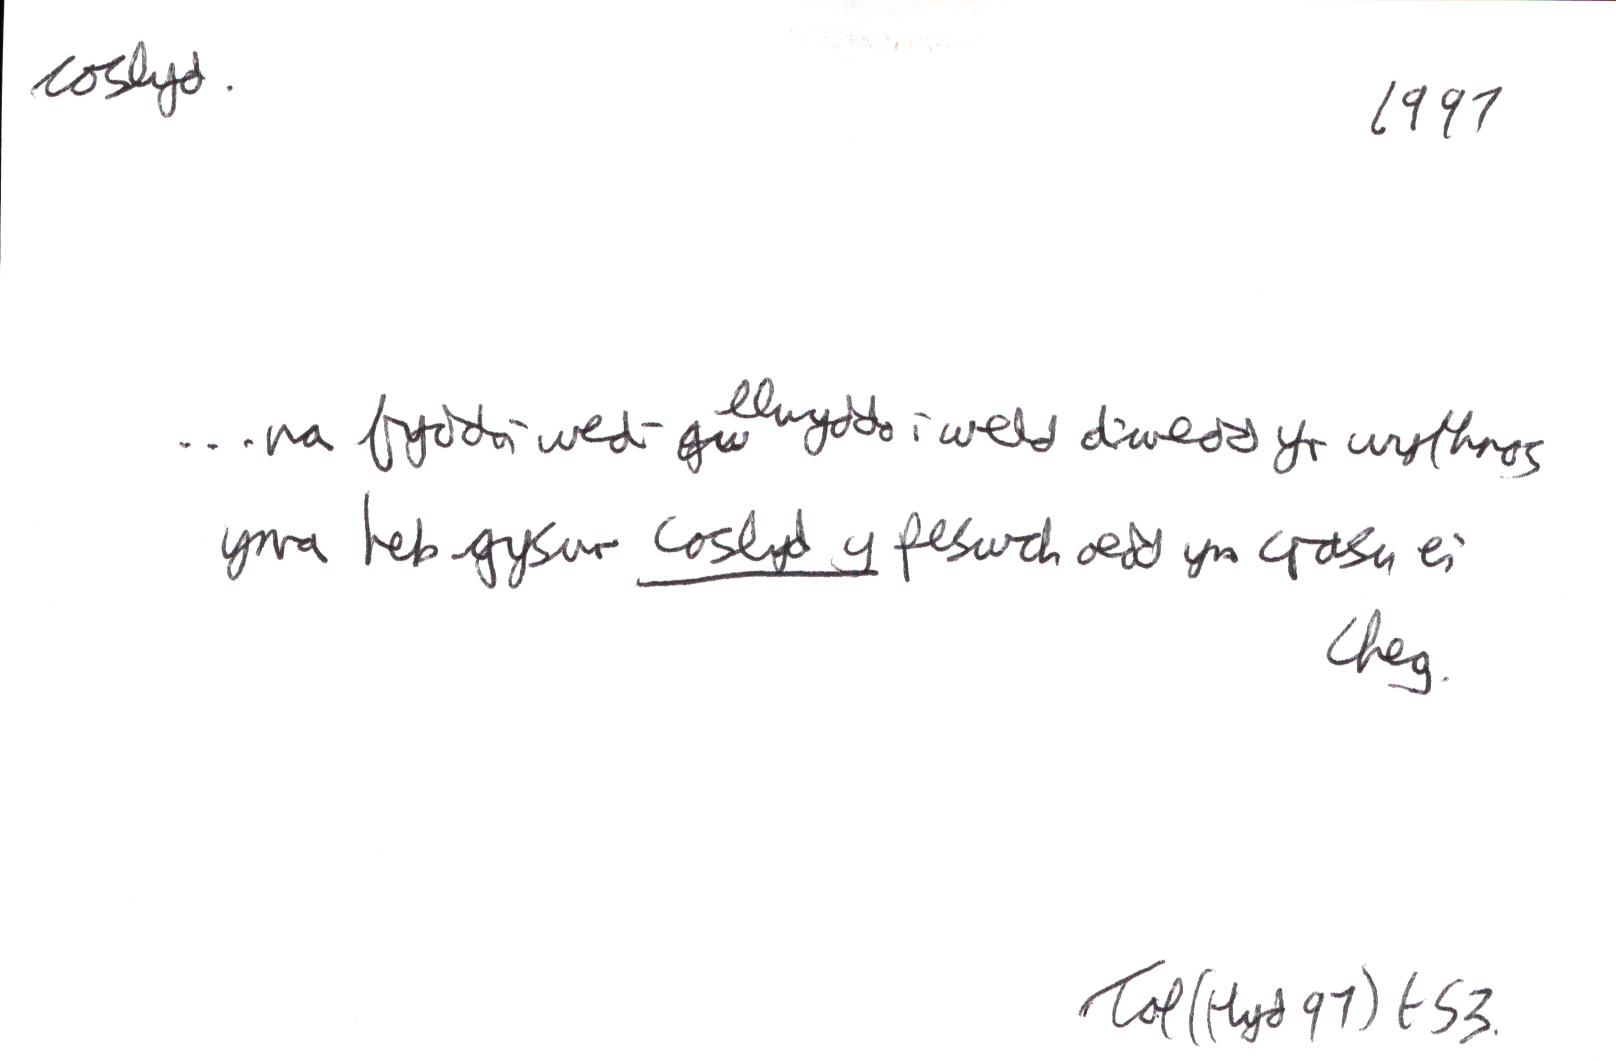 coslyd.
1997
....na fyddai wedi llwyddo i weld diwedd yr wythnos
yma heb gysur coslyd y peswch oedd yn crasu ei
cheg.
(Hyd 97) t 53.